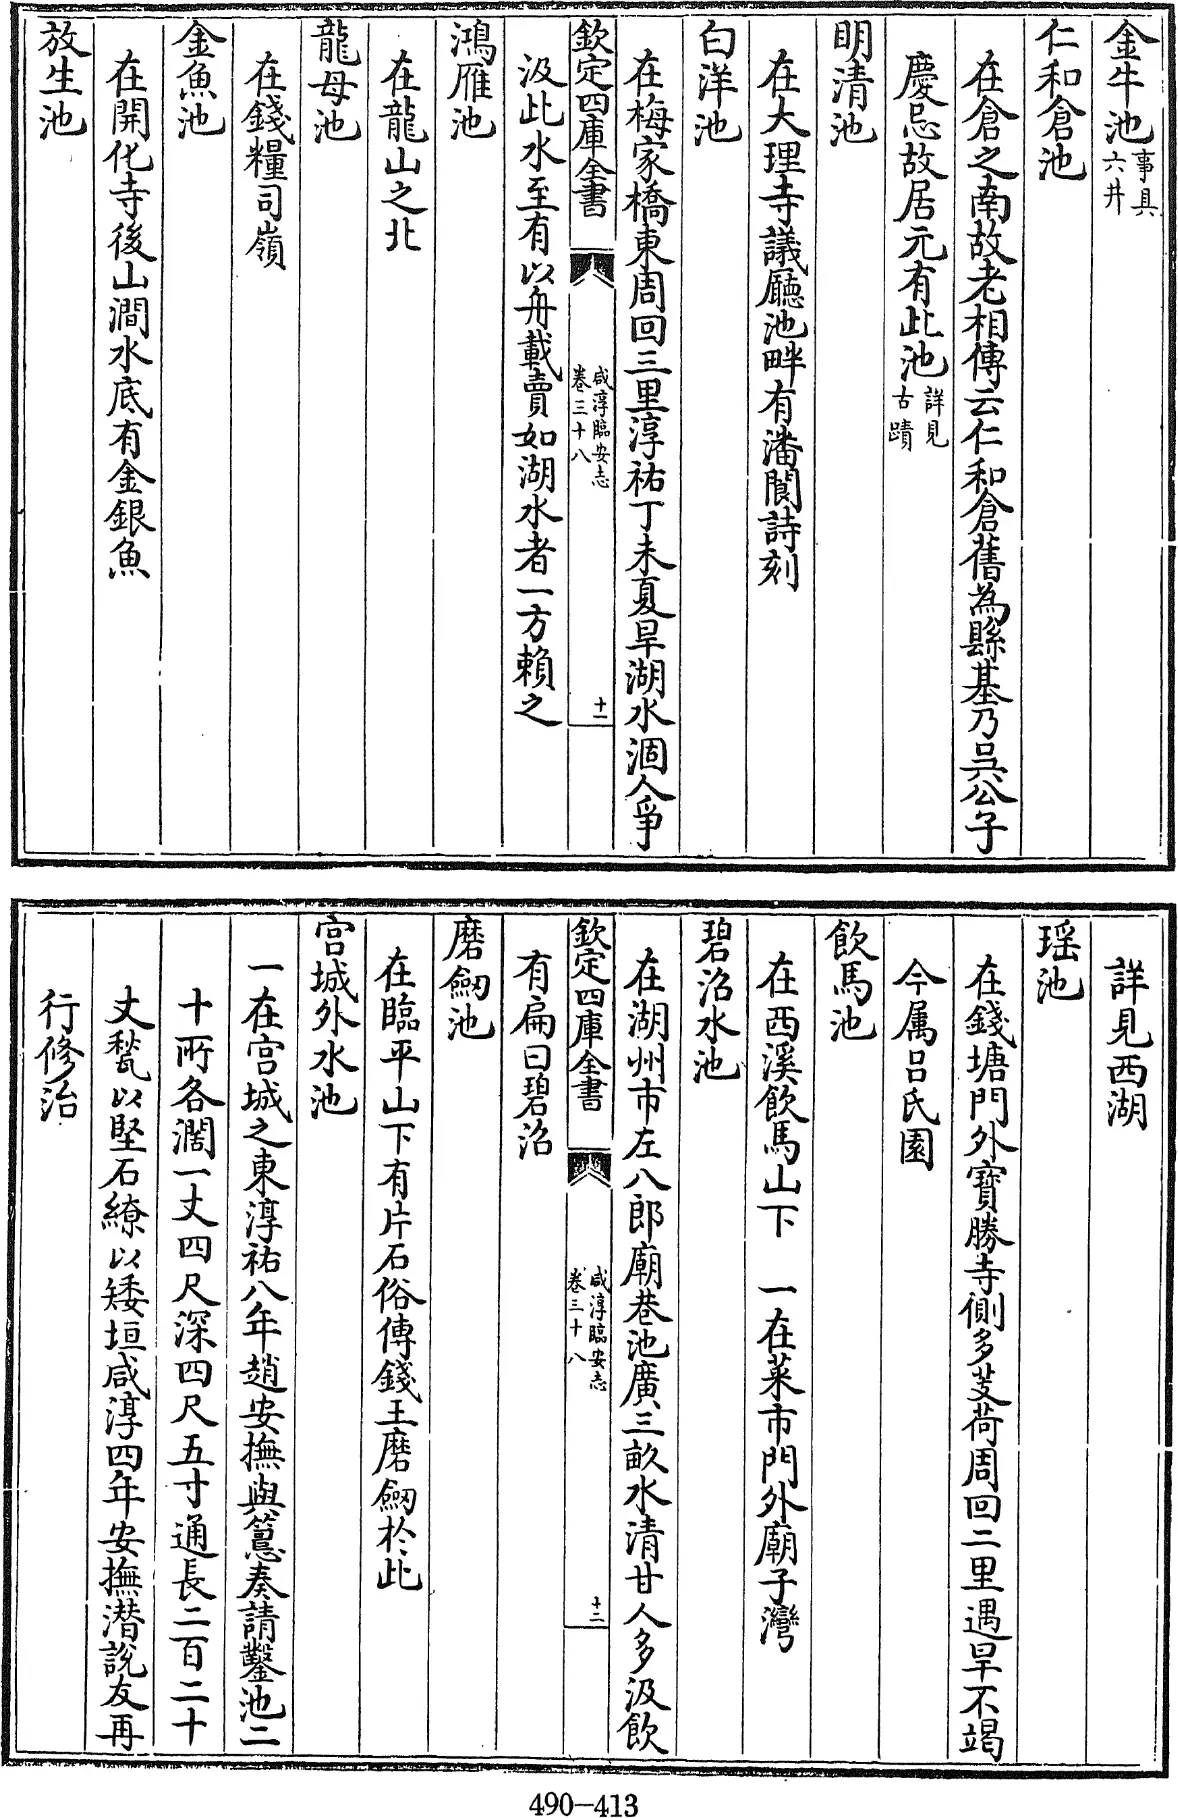 金牛池事具
六井
仁和倉池
在倉之南故老相傳云仁和倉舊為縣基乃吳公子
慶忌故居元有此池詳見
古蹟
明清池
在大理寺議廳池畔有潘閬詩刻
白洋池
在梅家橋東周回三里淳祐丁未夏旱湖水涸人爭
欽定四庫全書
咸淳臨安志
卷三十八
十一
汲此水至有以舟載賣如湖水者一方賴之
鴻雁池
在龍山之北
龍母池
在錢糧司嶺
金魚池
在開化寺後山澗水底有金銀魚
放生池
詳見西湖
瑶池
在錢塘門外寶勝寺側多芰荷周回二里遇旱不竭
今属吕氏園
飲馬池
在西溪飲馬山下 一在菜市門外廟子灣
碧沼水池
在湖州市左八郎廟巷池廣三畝水清甘人多汲飲
欽定四庫全書
咸淳臨安志
卷三十八
十二
有扁曰碧沼
磨劒池
在臨平山下有片石俗傳錢王磨劒於此
宫城外水池
一在宫城之東淳祐八年趙安撫與𥲅奏請鑿池二
十所各濶一丈四尺深四尺五寸通長二百二十
丈甃以堅石繚以矮垣咸淳四年安撫潜說友再
行修治
490-413